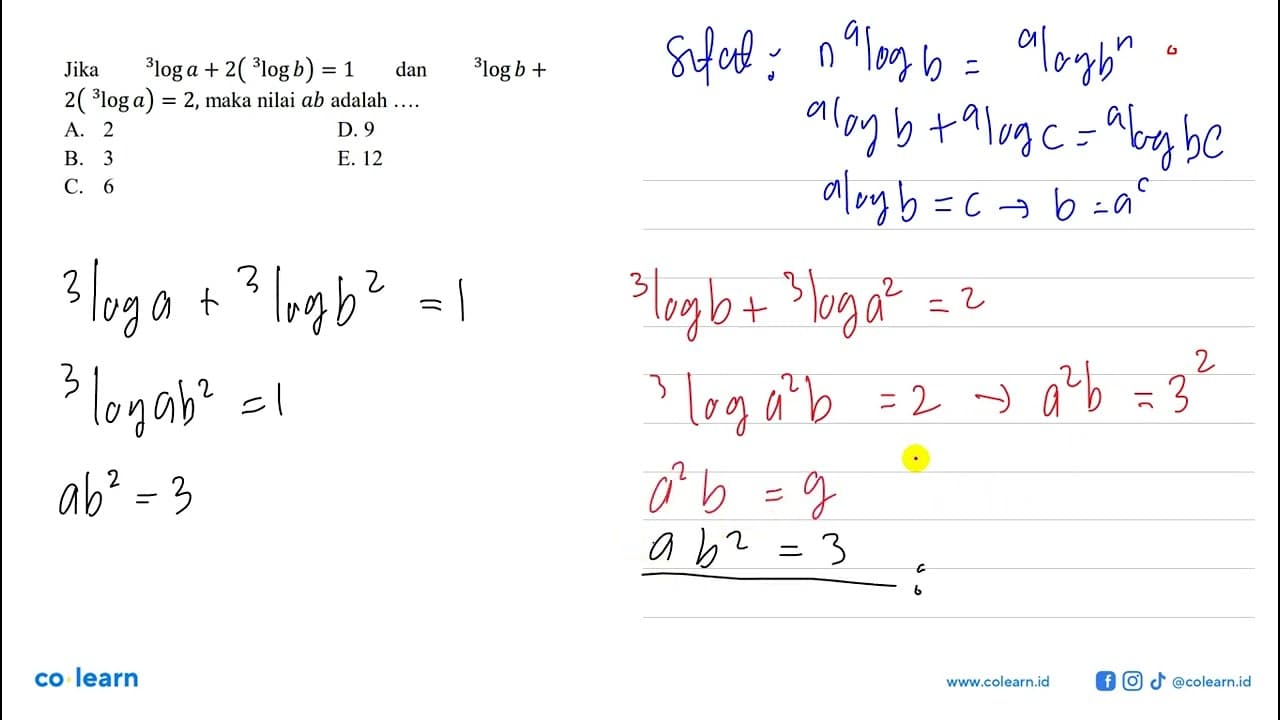 Jika ³log a + 2( ³log b) = 1 dan ³log b +
2( ³log a) = 2, maka nilai ab adalah ….
A. 2 D. 9
B. 3 E. 12
C. 6
Sifat : n ᵃlog b = ᵃlog bⁿ
ᵃlog b + ᵃlog c = ᵃlog bc
ᵃlog b = c → b = aᶜ
³log a + ³log b² = 1
³log ab² = 1
ab² = 3
³log b + ³log a² = 2
³log a²b = 2 → a²b = 3²
a²b = 9
ab² = 3 :
co learn
www.colearn.id @colearn.id